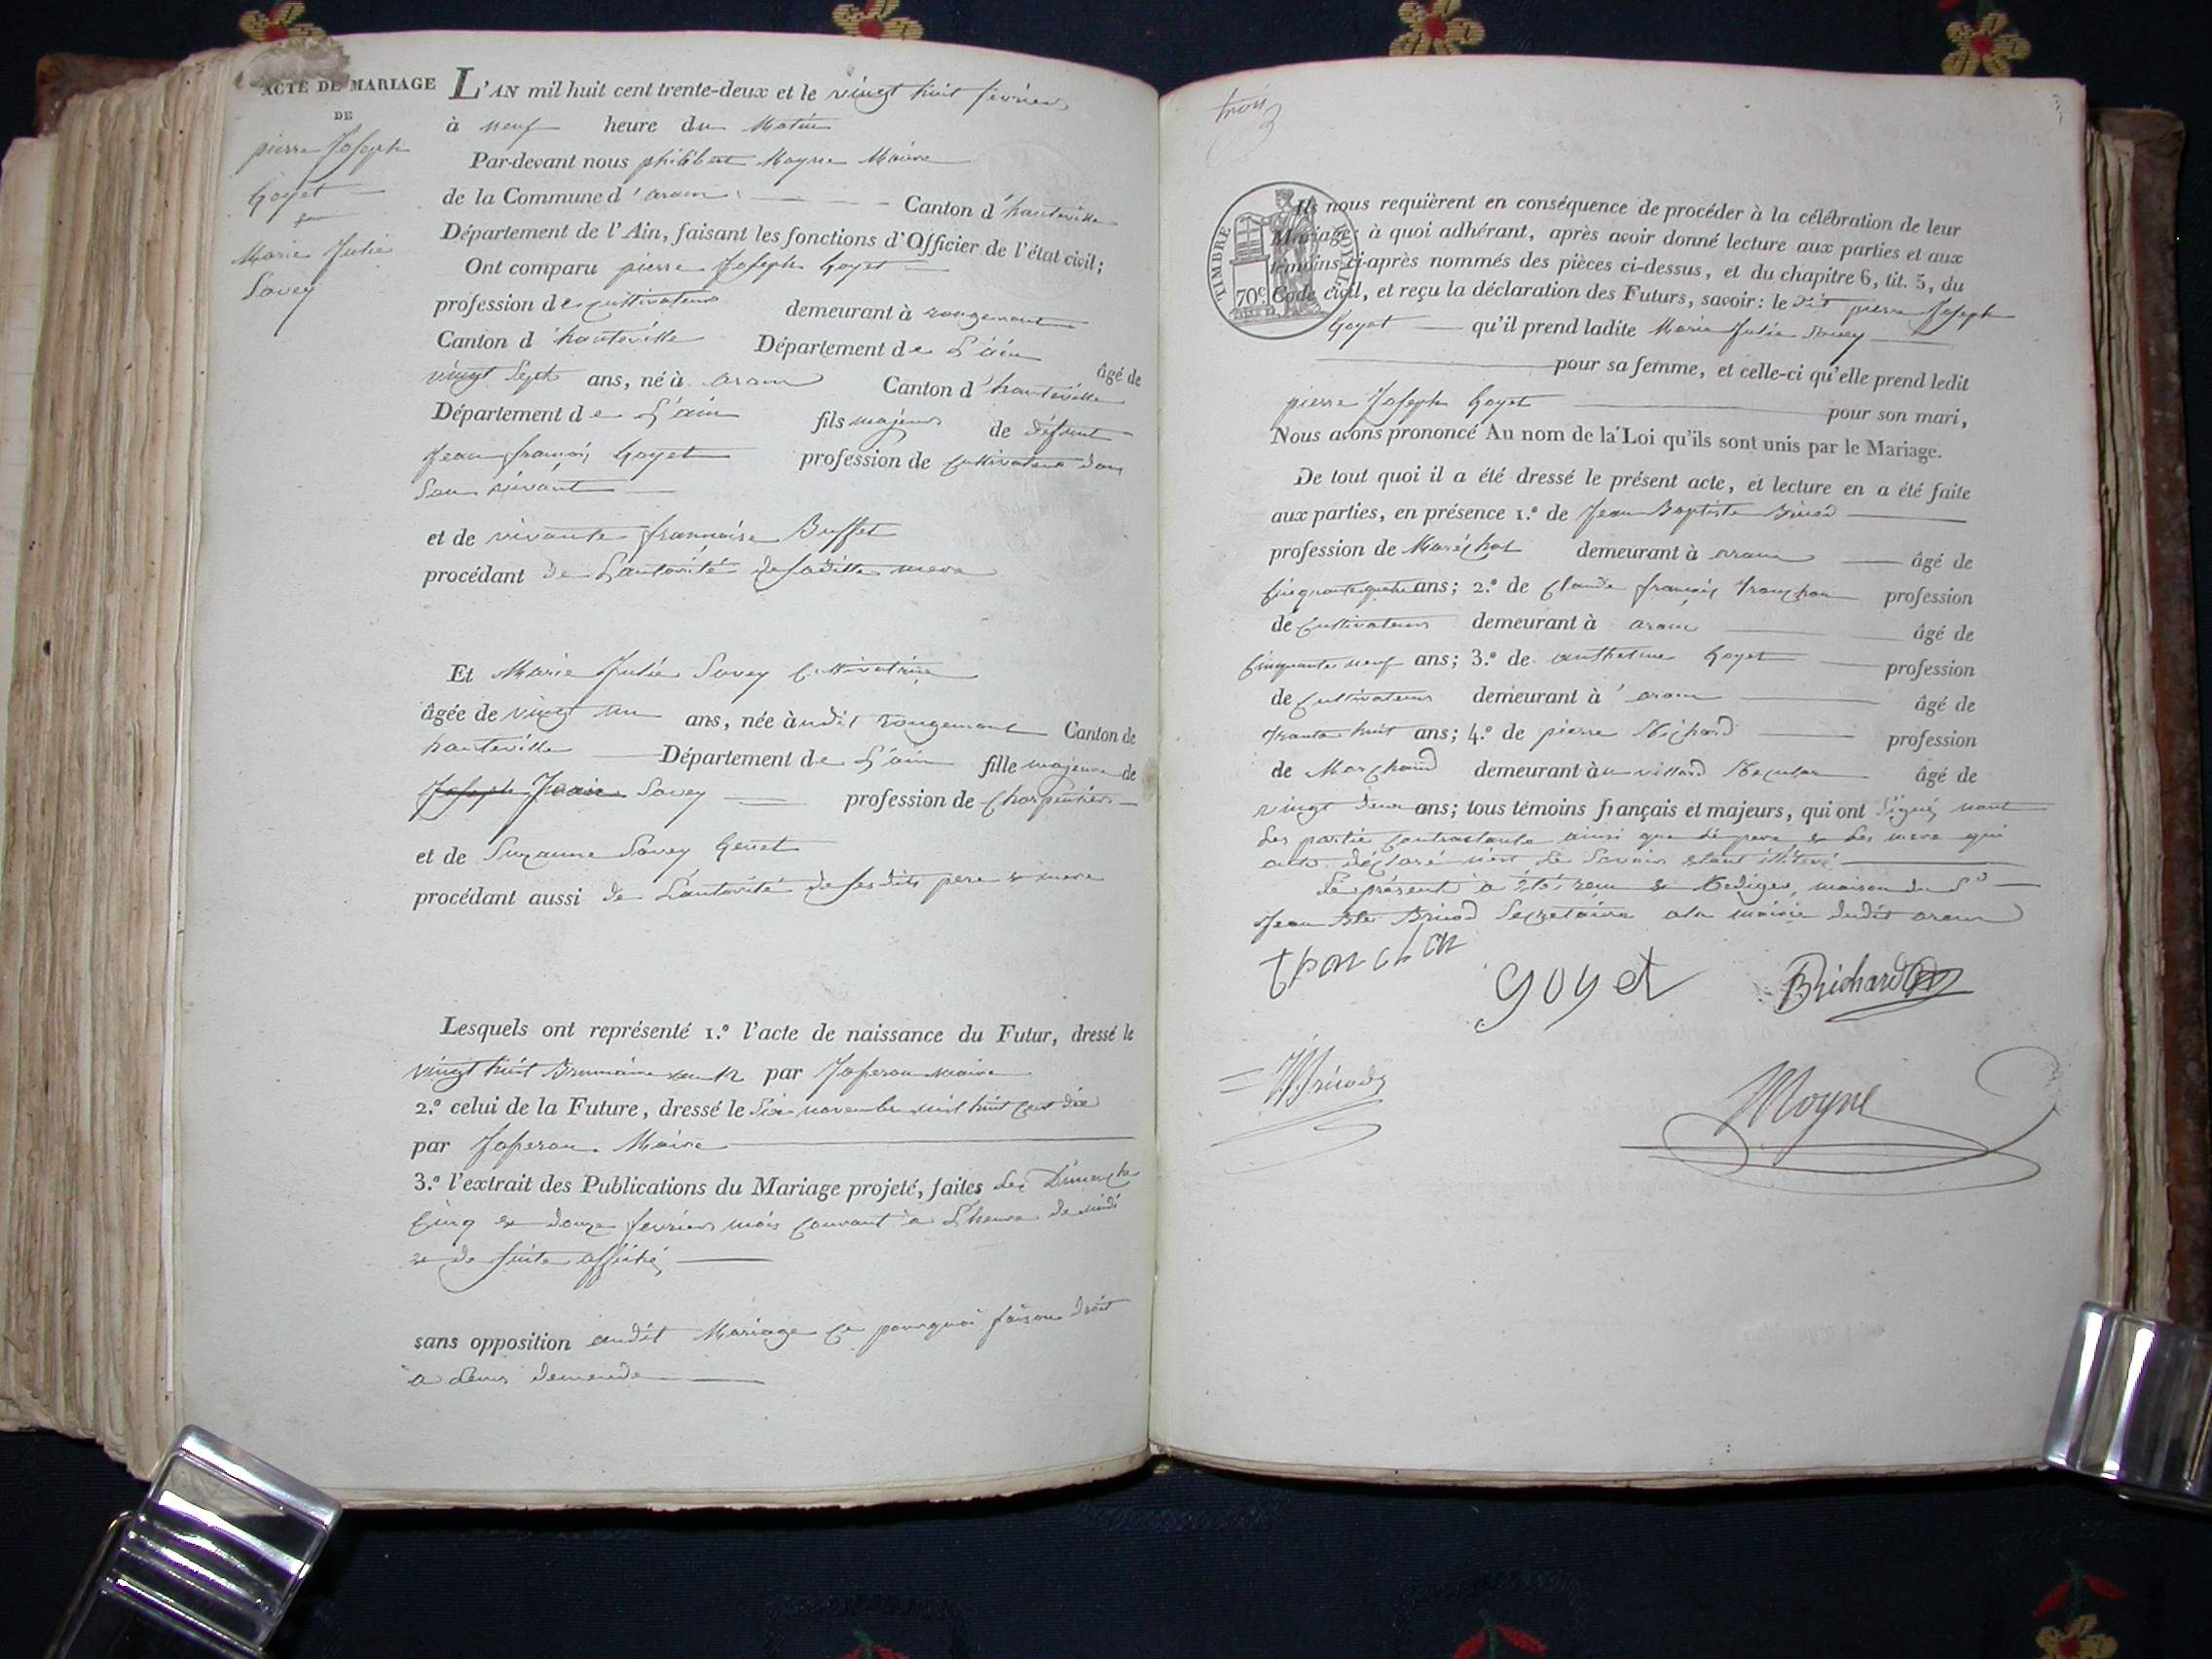 ACTE DE MARIAGE
DE
pierre Joseph
Goyet
Marie Julie
Savey
L'AN mil huit cent trente-deux et le vingt huit fevrier
à neuf heure du Matin
Par-devant nous philibert Moyne Maire
de la Commune d'aranc Canton d'hauteville
Département de l'Ain, faisant les fonctions d'Officier de l'état civil;
Ont comparu pierre Joseph Goyet
profession de cultivateur demeurant à rougemont
Canton d'hauteville Département de L'ain
âgé de
vingt Sept ans, né à aranc Canton d'hauteville
Département de L'ain fils majeur de défunt
Jean françois Goyet profession de Cultivateur dans
Son vivant
et de vivante françoise Buffet
procédant de L'autorité de sa ditte mere
Et Marie Julie Savey Cultivatrice
âgée de vingt un ans, née audit rougemont Canton de
hauteville Département de L'ain fille majeure de
Savey profession de Charpentier
et de Suzanne Savey Genet
procédant aussi de L'autorité de ses dits pere & mere
Lesquels ont représenté 1.º l'acte de naissance du Futur, dressé le
vingt huit Brumaire an 12 par maire
2.º celui de la Future, dressé le Six novembre mil huit cent dix
par Maire
3.º l'extrait des Publications du Mariage projeté, faites les Dimanche
Cinq & douze fevrier mois Courant à L'heure de midi
& de Suite affiché
sans opposition audit Mariage Ce pourquoi faison droit
a Leur demande
trois
3
TIMBRE ROYAL
70c
Ils nous requièrent en conséquence de procéder à la célébration de leur
Mariage; à quoi adhérant, après avoir donné lecture aux parties et aux
témoins ci-après nommés des pièces ci-dessus, et du chapitre 6, tit. 5, du
Code civil, et reçu la déclaration des Futurs, savoir: le dit pierre Joseph
Goyet qu'il prend ladite Marie Julie Savey
pour sa femme, et celle-ci qu'elle prend ledit
pierre Joseph Goyet pour son mari,
Nous avons prononcé Au nom de la Loi qu'ils sont unis par le Mariage.
De tout quoi il a été dressé le présent acte, et lecture en a été faite
aux parties, en présence 1.º de Jean Baptiste Brisod
profession de Maréchal demeurant à aranc âgé de
Cinquante quatre ans; 2.º de Claude françois tronchon profession
de Cultivateur demeurant à aranc âgé de
Cinquante neuf ans; 3.º de anthelme Goyet profession
de Cultivateur demeurant à aranc âgé de
trante huit ans; 4.º de pierre profession
de Marchand demeurant à âgé de
vingt deux ans; tous témoins français et majeurs, qui ont Signé nont
Les partie Contractante ainsi que Le pere & Les mere qui
ont déclaré Le Savoir étant
Le présent a été & Rediger, maison du Sr
Jean Bte Brisod Secretaire a la mairie dudit aranc
tronchon
goyet
Moyne